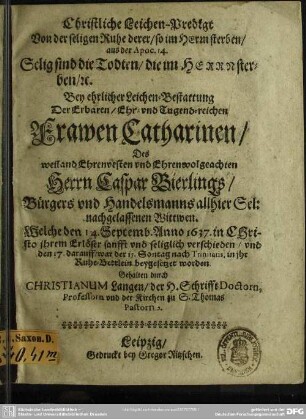 Christliche Leichen-Predigt
Von der seligen Ruhe derer/ so im Herrn sterben/
aus der Apoc. 14.
Selig sind die Todten/ die im HERRN ster-
ben/ꝛc.
Bey ehrlicher Leichen-Bestattung
Der Erbaren/ Ehr- und Tugend-reichen
Frawen Catharinen/
Des
weiland Ehrenvesten vnd Ehrenwolgeachten
Herrn Caspar Bierlings/
Bürgers vnd Handelsmanns allhier Sel:
nachgelassenen Witwen.
Welche den 14. Septemb. Anno 1637. in CHri-
sto ihrem Erlöser sanfft vnd seliglich verschieden/ vnd
den 17. darauff/ war der 15. Sontag nach Trinitatis, in ihr
Ruhe-Bettlein beygesetzet worden.
Gehalten durch
CHRISTIANUM Langen/ der H. Schrifft Doctorn,
Professorn vnd der Kirchen zu S. Thomas
Pastorn.
Leipzig/
Gedruckt bey Gregor Ritzschen.
Saxon. D.
40, 41